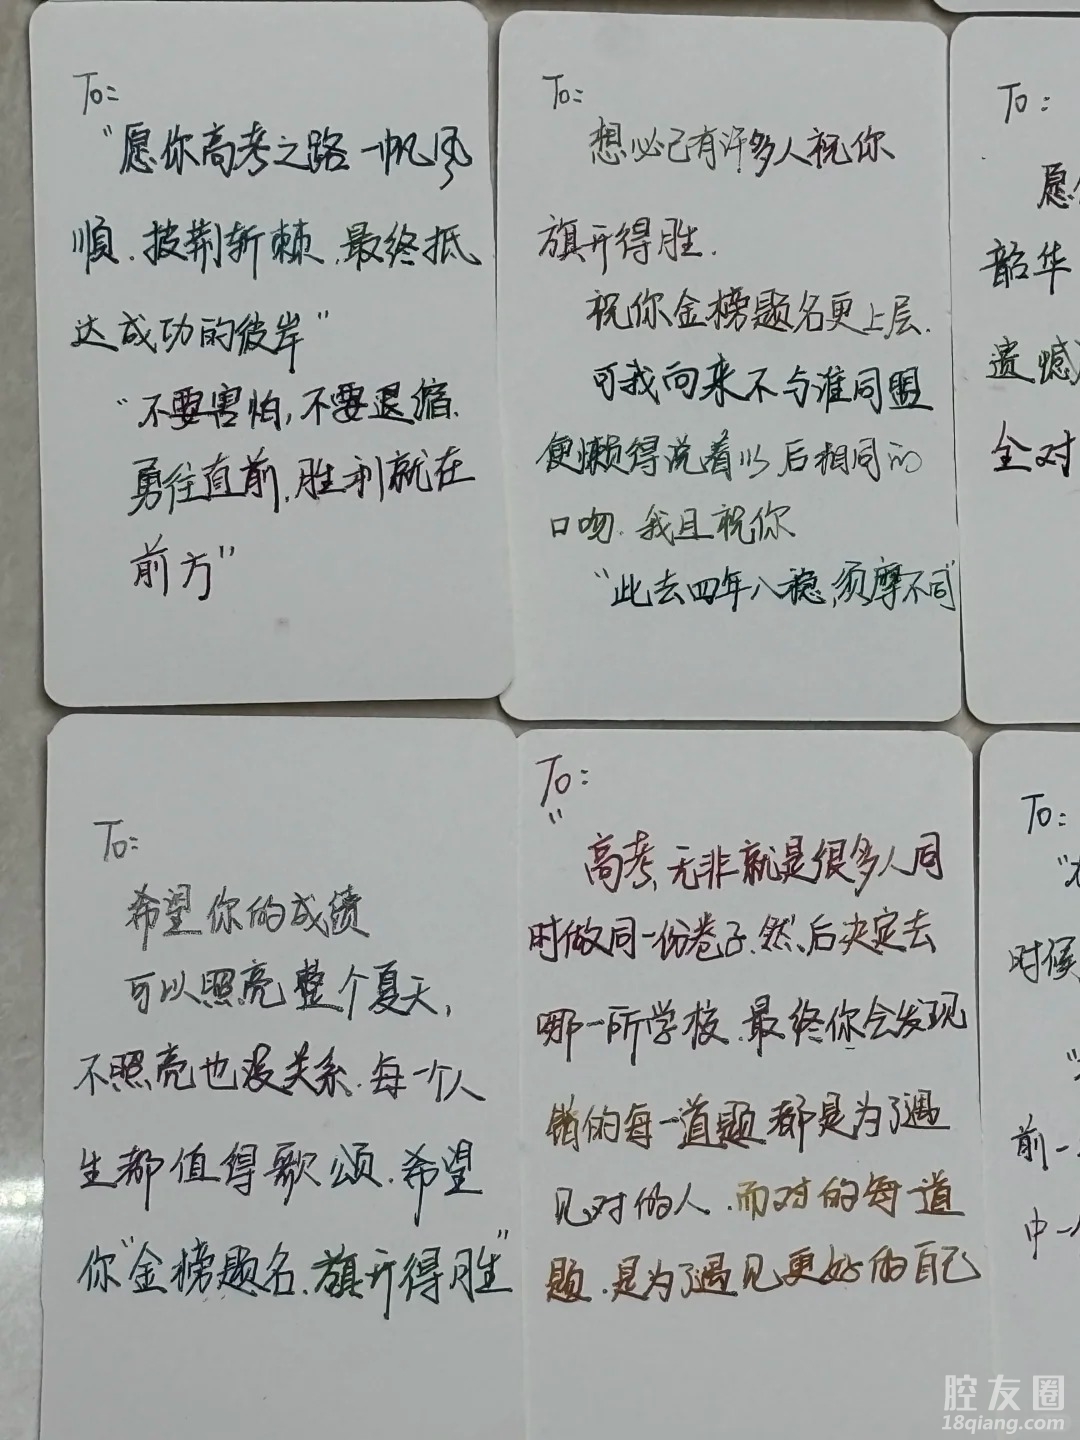 To:
"愿你高考之路一帆风
顺.披荆斩棘.最终抵
达成功的彼岸"
"不要害怕,不要退缩.
勇往直前,胜利就在
前方"
To:
想必已有许多人祝你
旗开得胜.
祝你金榜题名更上层.
可我向来不与谁同盟
便懒得说着以后相同的
口吻.我且祝你
"此去四年八稳,须摩不同"
To:
愿你
韶华
遗憾
全对
To:
希望你的成绩
可以照亮整个夏天,
不照亮也没关系.每一个人
生都值得歌颂.希望
你"金榜题名.旗开得胜"
To:
"高考,无非就是很多人同
时做同一份卷子.然后决定去
哪一所学校.最终你会发现
错的每一道题都是为了遇
见对的人.而对的每一道
题.是为了遇见更好的自己
To:
时候
前一
中一
腔友圈
18qiang.com